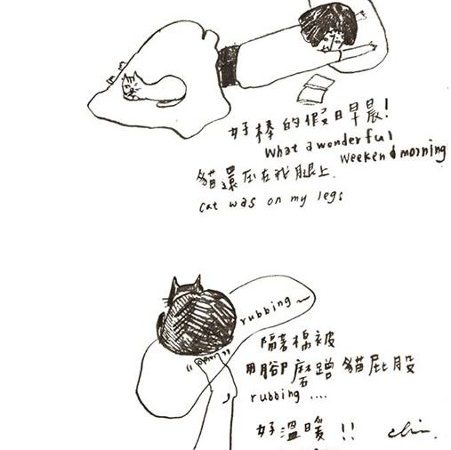 好棒的假日早晨！
What a wonderful
weekend morning
貓還压在我腿上.
cat was on my legs
rubbing~
隔著棉被
用腳磨蹭貓屁股
rubbing ....
好溫暖！！